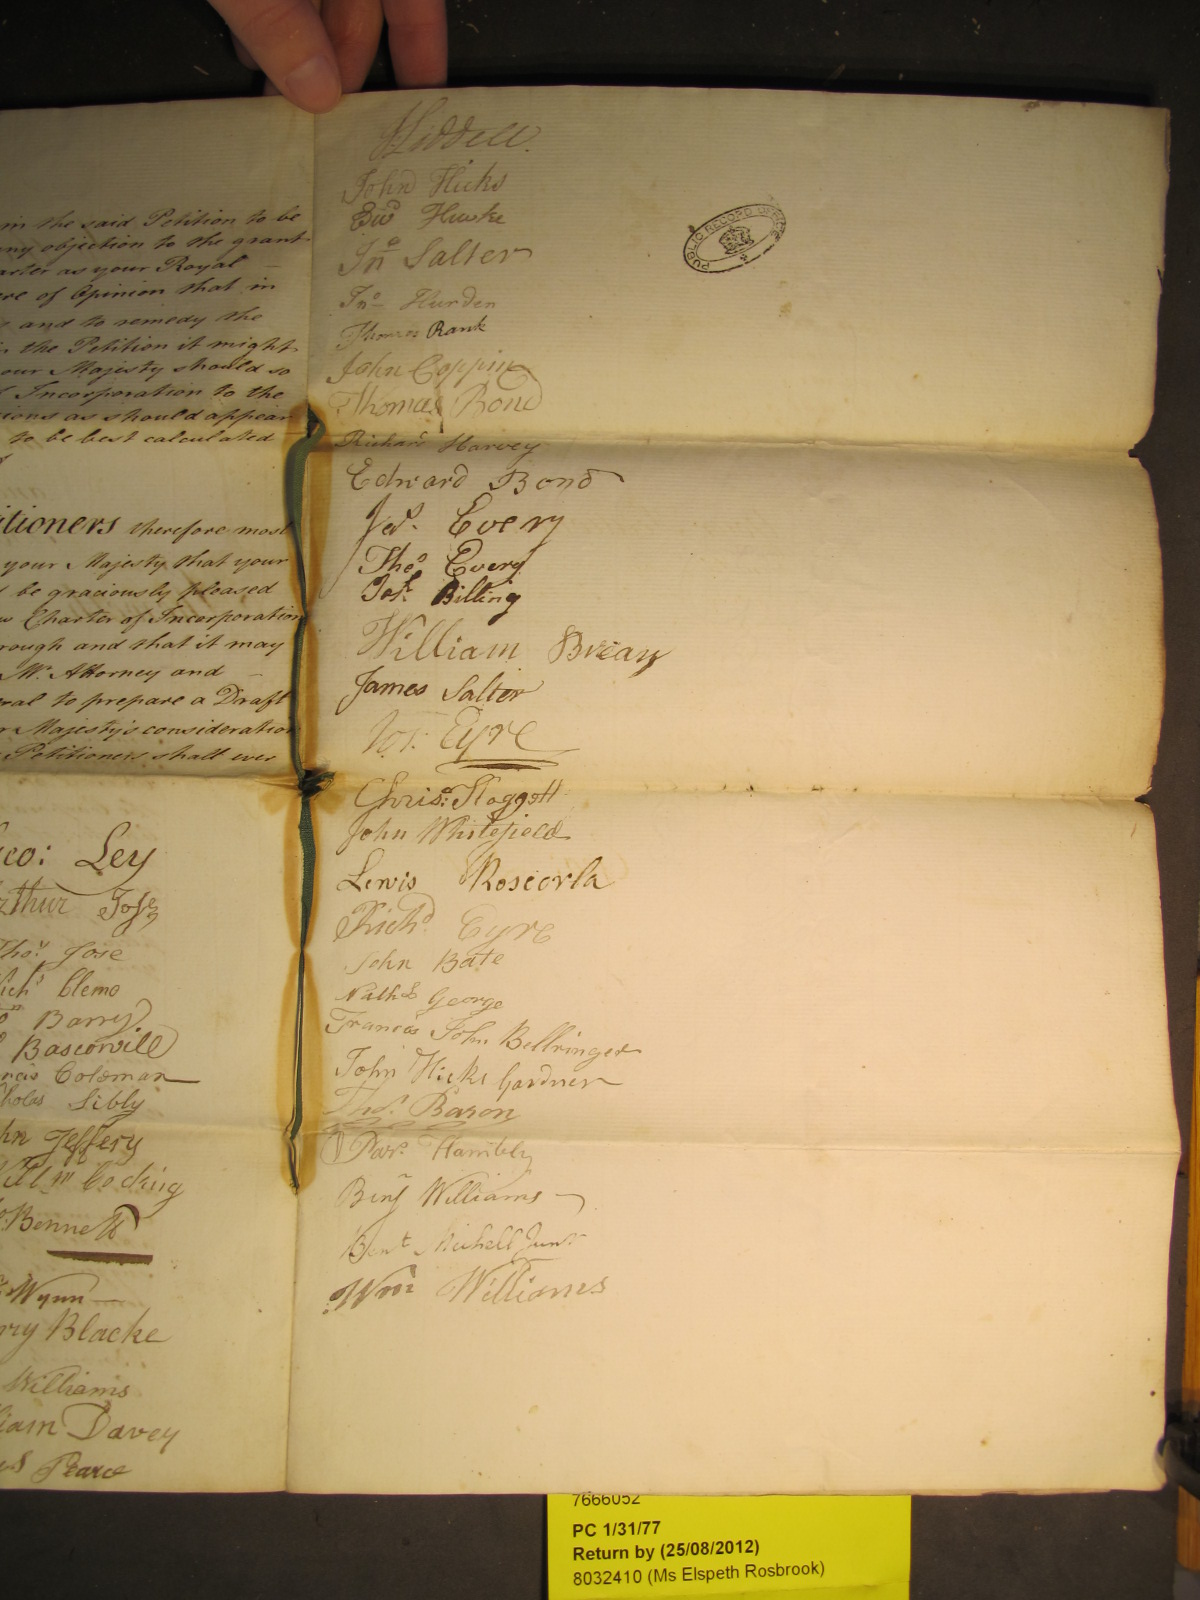 in the said Petition to be
any objection to the grant
as your Royal
of Opinion that in
and to remedy the
in the Petition it might
our Majesty should so
Incorporation to the
as should appear
to be best calculated
therefore most
your Majesty that your
be graciously pleased
Charter of Incorporation
and that it may
Mr. Attorney and
to prepare a Draft
Majesty's consideration
Petitioners shall ever
Ley
Jose
Thos. Jose
Clemo
Barry
Bascorvill
Coleman
Sibly
Jeffery
Cocking
Bennett
Wynn
Blacke
Williams
Davey
Pearce
Liddell.
John Hicks
Edwd Hawke
Jno Salter
Jno Hurden
Thomas Rank
John Coppin
Thomas Bond
Richard Harvey
Edward Bond
Jas. Every
Thos Every
Josh. Billing
William Breay
James Salter
Eyre
Chris: Hoggett
John Whitefield
Lewis Roscorla
Richd. Eyre
John Bate
Nathl George
Francis John Bellringer
John Hicks Gardner
Thos. Baron
Hambly
Benj Williams
Michell Junr
Wm Williams
PUBLIC RECORD OFFICE
7666052
PC 1/31/77
Return by (25/08/2012)
8032410 (Ms Elspeth Rosbrook)